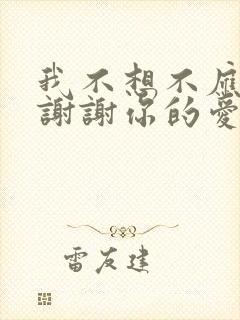 我不想不應
謝謝你的愛
雷友建